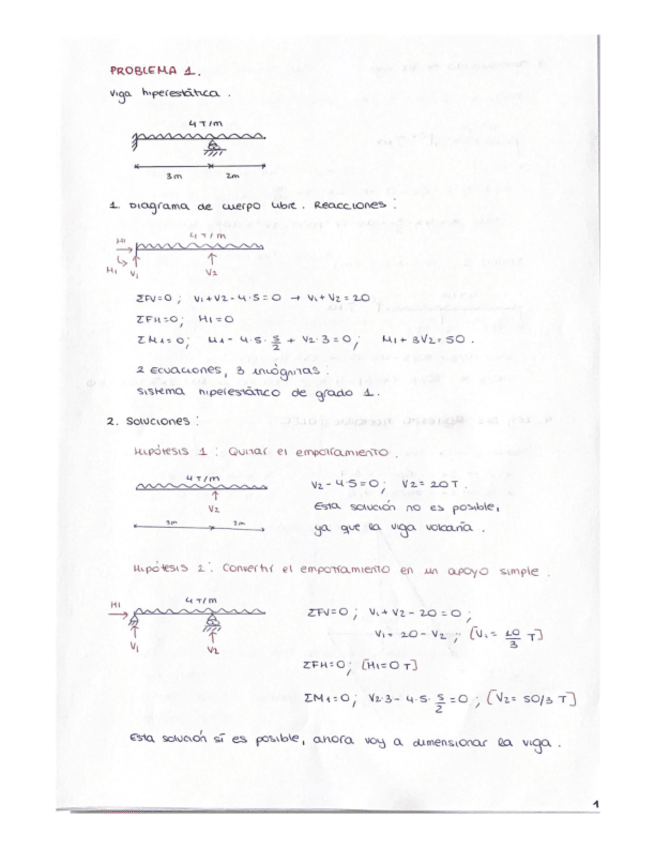 PROBLEMA 1.
Viga hiperestática.
4 T/m
3m 2m
1. Diagrama de cuerpo libre. Reacciones:
H1 4 T/m
M1 V1 V2
ΣFV=0; V1+V2-4·5=0 → V1+V2=20
ΣFH=0; H1=0
ΣM1=0; M1-4·5·5/2+V2·3=0; M1+3V2=50.
2 ecuaciones, 3 incógnitas:
sistema hiperestático de grado 1.
2. Soluciones:
Hipótesis 1: Quitar el empotramiento.
4 T/m V2-4·5=0; V2=20T.
V2 Esta solución no es posible,
3m 2m ya que la viga volcaría.
Hipótesis 2: Convertir el empotramiento en un apoyo simple.
H1 4 T/m ΣFV=0; V1+V2-20=0;
V1 V2 V1=20-V2; [V1=10/3 T]
ΣFH=0; [H1=0 T]
ΣM1=0; V2·3-4·5·5/2=0; [V2=50/3 T]
Esta solución sí es posible, ahora voy a dimensionar la viga.
1